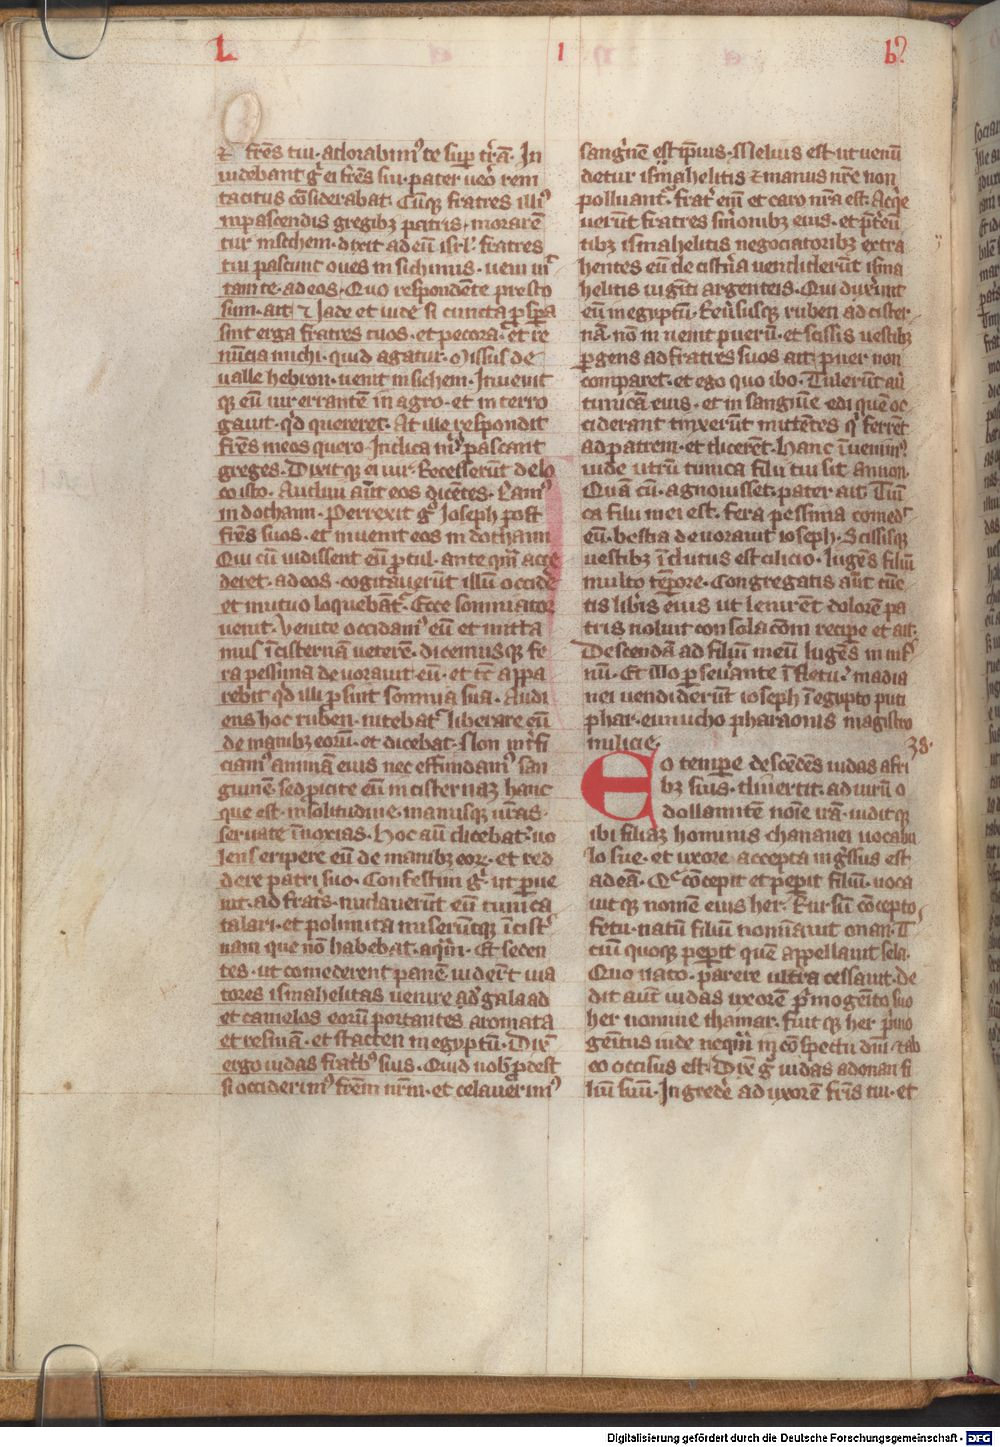 L I b᷒
⁊ fr̄es tui · adorabim᷒ te sup̱ tr̄ā · In
uidebant g̊ ei fr̄es sui · pater ueͦ rem
tacitus cōsiderabat · Cūq̨ fratres illi᷒
in pascendis gregibꝫ patris · morarē
tur in sichem · dixit ad eū isrl̓ · fratres
tui pascunt oues in sichimis · ueni mit
tam te · ad eos · Quo respondēte presto
sum · ait · ⁊ Uade et uide si cuncta ꝓsꝑa
sint erga fratres tuos · et pecora · et re
nūcia michi · quid agatur · Missus de
ualle hebron · uenit in sichem · Inuenit
q̨ eū uir errantē in agro · et interro
gauit · qͩ quereret · At ille respondit
fr̄es meos quero · Indica m ͥ u ͥ pascant
greges · Dixitq̨ ei uir · Recesserūt de lo
co isto · Audiui aūt eos dicētes · Eam᷒
in dothaim · Perrexit g̊ ioseph post
fr̄es suos · et inuenit eos in dothaim
Qui cū uidissent eū ꝓcul · ante qm̄ acce
deret · ad eos · cogitauerūt illū occide̓
et mutuo loquebāt᷑ · Ecce somniator
uenit · Uenite occidam᷒ eū et mitta
mus ī cisternā ueterē · dicemusq̨ fe
ra pessima deuorauit eū · et tc̄ appa
rebit qͩ illi ꝓsint somnia sua · Audi
ens hoc ruben · nitebat᷑ liberare eū
de manibꝫ eorū · et dicebat · Non int̓fi
ciam᷒ animā eius nec effundam᷒ san
guinē · sed ꝓicite eū in cisternaꝫ hanc
que est · in solitudine · manusq̨ ur̄as
seruate īnoxias · Hoc aūt dicebat · uo
lens eripere eū de manibꝫ eoꝝ · et red
dere patri suo · Confestim g ͥ · ut ꝑue
nit · ad frat̓s · nudauerūt eū tunica
talari · et polimita miserūtq̨ ī cist̓
nam que nō habebat · aqm̄ · Et seden
tes · ut comederent panē uidēt uia
tores ismahelitas uenire ad galaad
et camelos eorū portantes aromata
et resinā · et stacten in egyptū · Dix̄
ergo iudas frat ͥb᷒ suis · Quid nob̄ ꝓdest
si occiderim᷒ fr̄em nr̄m · et celauerim᷒
sanginē est ip̄ius · Melius est ut uenū
detur ismahelitis ⁊ manus nr̄e non
polluant᷑ · frat̓ eīm et caro nr̄a est · Acqͥe
uerūt fratres ṡmonibꝫ eius · et p̄t̓eū
tibꝫ ismahelitis negociatoribꝫ extra
hentes eū de cist̓na uendiderūt isma
helitis uiginti argenteis · Qui duxerūt
eū in egyptū · Reu̓susq̨ ruben ad cister
nā · nō inuenit puerū · et scissis uestibꝫ
ꝑgens ad fratres suos ait · puer non
comparet · et ego quo ibo · Tulerūt aūt
tunicā eius · et in sangūine edi quē oc
ciderant tinxerūt mittētes qͥ ferrēt
ad patrem · et dicerēt · Hanc īuenim᷒
uide utrū tunica filii tui sit an non
Quā cū · agnouisset pater ait · Tuni
ca filii mei est · fera pessima comed ͥt
eū · bestia deuorauit ioseph · Scissisq̨
uestibꝫ īdutus est cilicio · lugēs filiū
multo tēpore · Congregatis aūt cūc
tis lib̓is eius ut lenirēt dolorē pa
tris noluit consolac̄oem recipe̓ et ait ·
Descendā ad filiū meū lugēs in inf̓
nū · Et illo ꝑseuerante ī fletu · madia
nei uendiderūt ioseph ī egypto puti
phar · eunucho pharaonis magistro
milicie ·
38 ·
Eo tempe̓ descēdēs iudas a fri
bꝫ suis · diuertit · ad uirū o
dollamitē noīe irā · uiditq̨
ibi filiaꝫ hominis chananei uocabu
lo sue · et uxore accepta ingr̓ssus est
ad eā · Qͤ cōcepit et peꝑit filiū · uoca
uitq̨ nomen eius her · Rursū cōcepto
fetu · natū filiū nominauit onan · T
ciū quoq̨ peꝑit quē appellauit sela ·
Quo nato · parere ultra cessauit · de
dit aūt iudas uxorē p ͥmogēito suo
her nomine thamar · fuitq̨ her p ͥmo
gēitus iude neqm̄ in cōspectu dn̄i · ⁊ ab
eo occisus est · Dix̄ g̊ iudas ad onan fi
liū suū · Ingrede̓ ad uxorē fr̄is tui · et
Digitalisierung gefördert durch die Deutsche Forschungsgemeinschaft - DFG